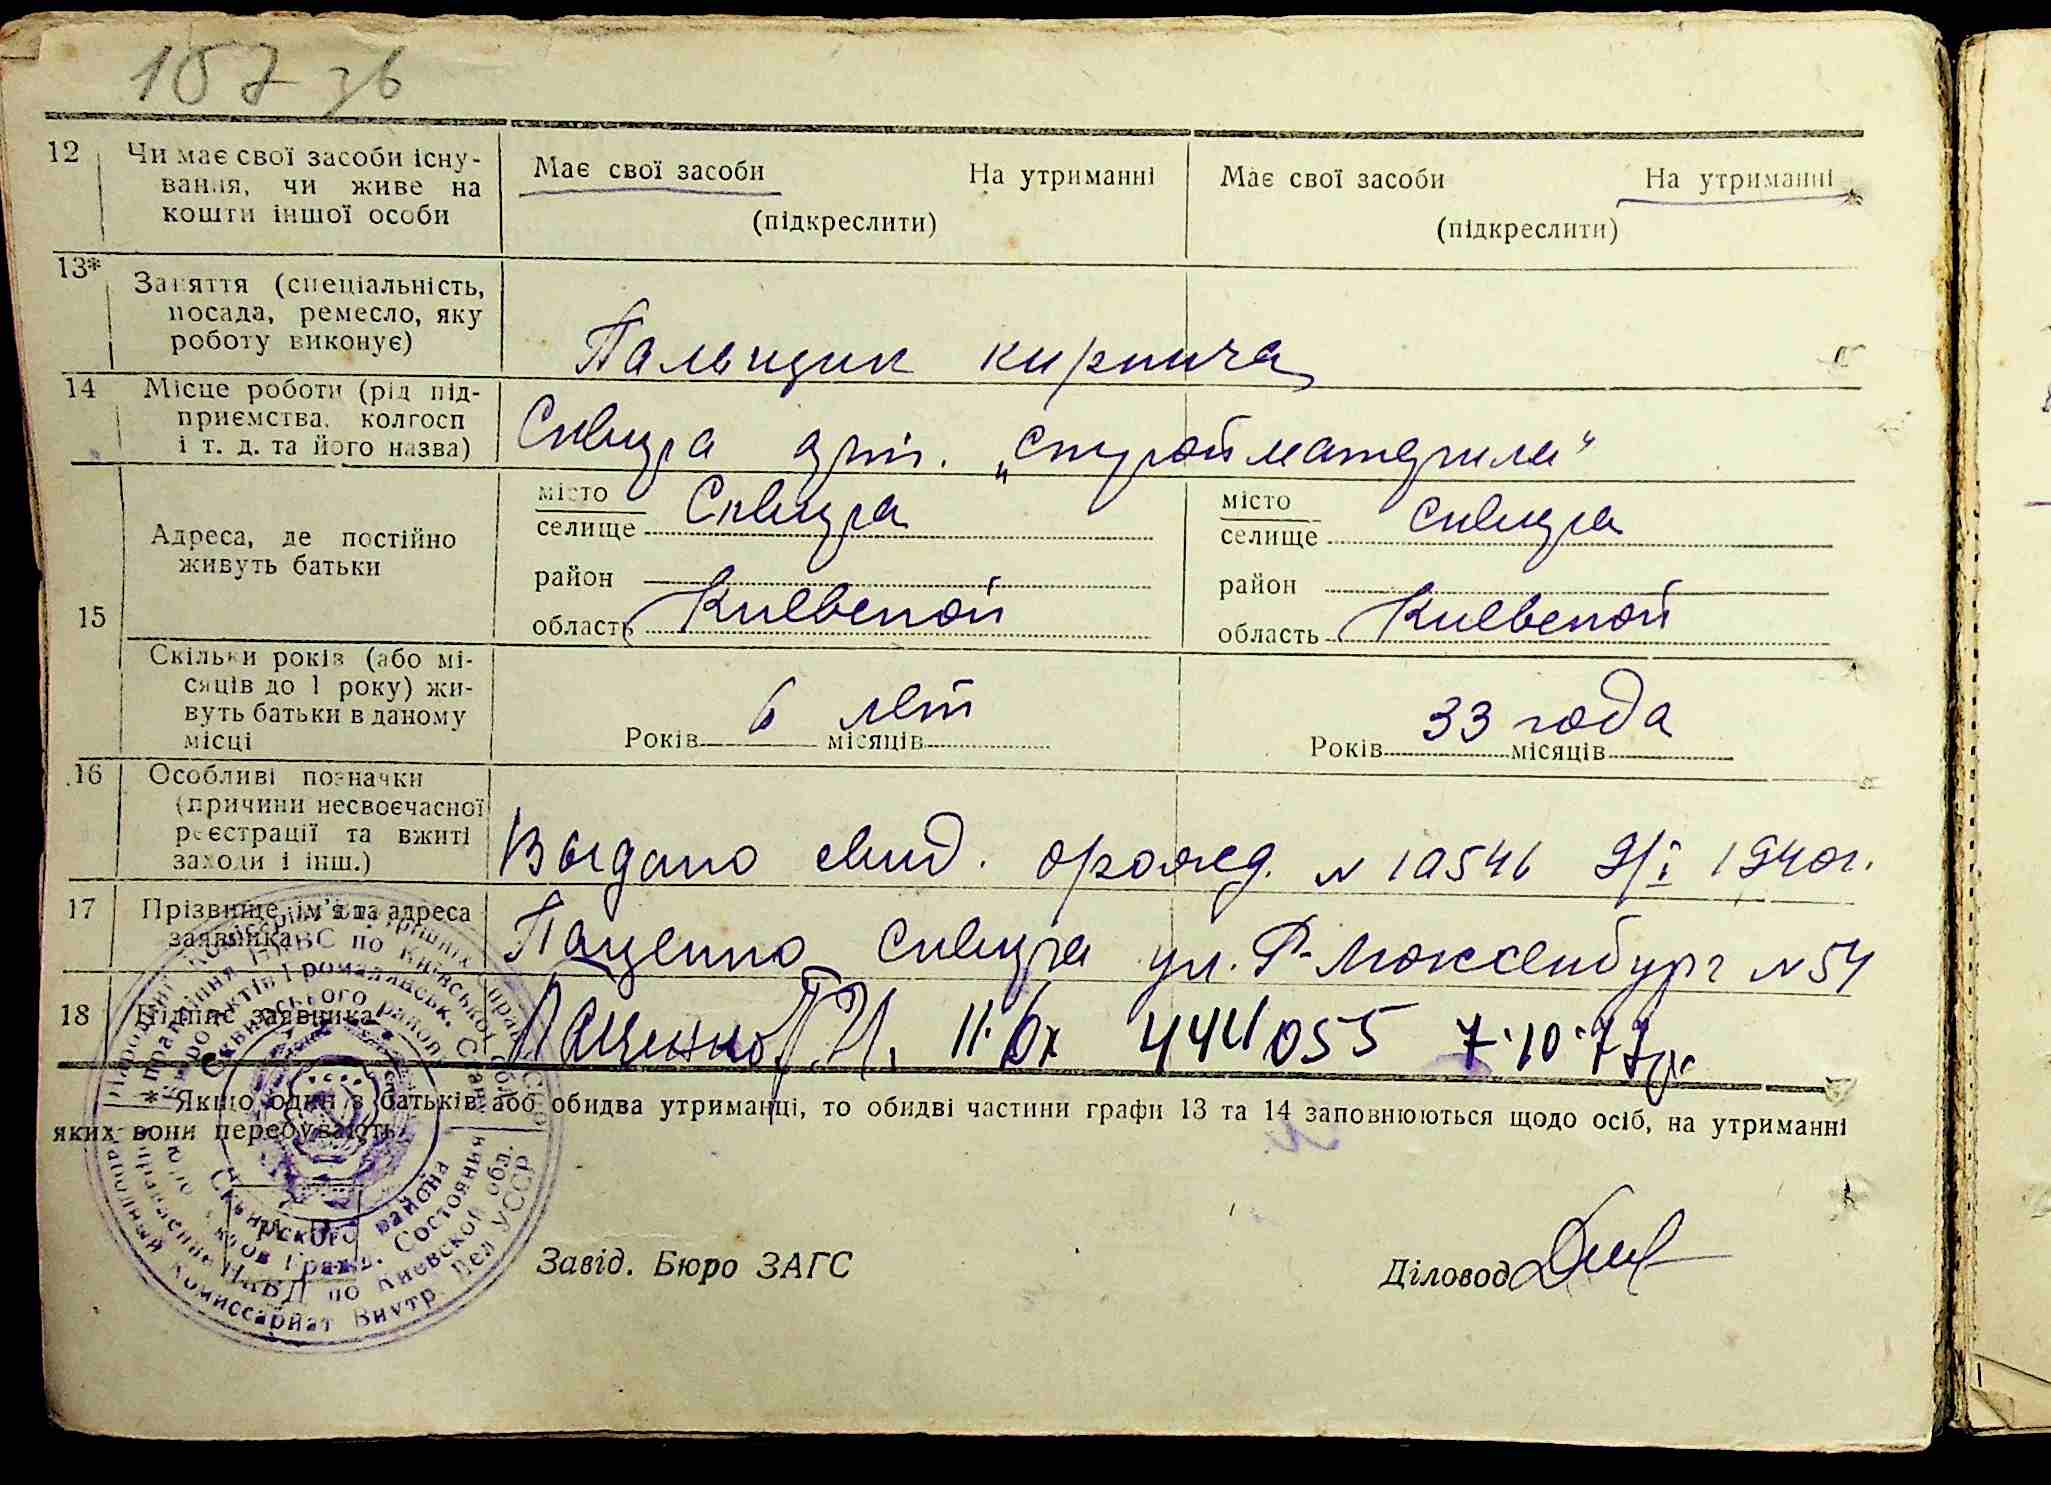 157 зв
12 Чи має свої засоби існу-
вання, чи живе на
кошти іншої особи
Має свої засоби На утриманні
(підкреслити)
Має свої засоби На утриманні
(підкреслити)
13* Заняття (спеціальність,
посада, ремесло, яку
роботу виконує)
Пальщик кирпича
14 Місце роботи (рід під-
приємства, колгосп
і т. д. та його назва)
Сквира арт. „стройматериал"
15 Адреса, де постійно
живуть батьки
місто
селище Сквира
район
область Киевской
місто
селище Сквира
район
область Киевской
Скільки років (або мі-
сяців до 1 року) жи-
вуть батьки в даному
місці
Років 6 лет місяців
Років 33 года місяців
16 Особливі позначки
(причини несвоєчасної
реєстрації та вжиті
заходи і інш.)
Выдано свид. о рожд. N 10546 9/I 1940г.
17 Прізвище, ім'я та адреса
заявника
Паценко Сквира ул. Р-Люксенбург N 54
18 Підпис заявника
444055 7.10.77г.
* Якщо один з батьків або обидва утриманці, то обидві частини графи 13 та 14 заповнюються щодо осіб, на утриманні
яких вони перебувають.
Завід. Бюро ЗАГС
Діловод
Сквирського район
Сквирского района
по Киевской обл.
Комиссариат Внутр. Дел УССР